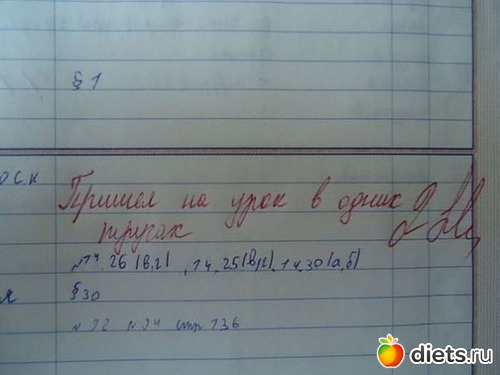 § 1
оск
Пришел на урок в одних
трусах
№14.26(в,г), 14.25(в,г), 14.30(а,б)
я § 30
№ 22 № 24 стр 136
diets.ru